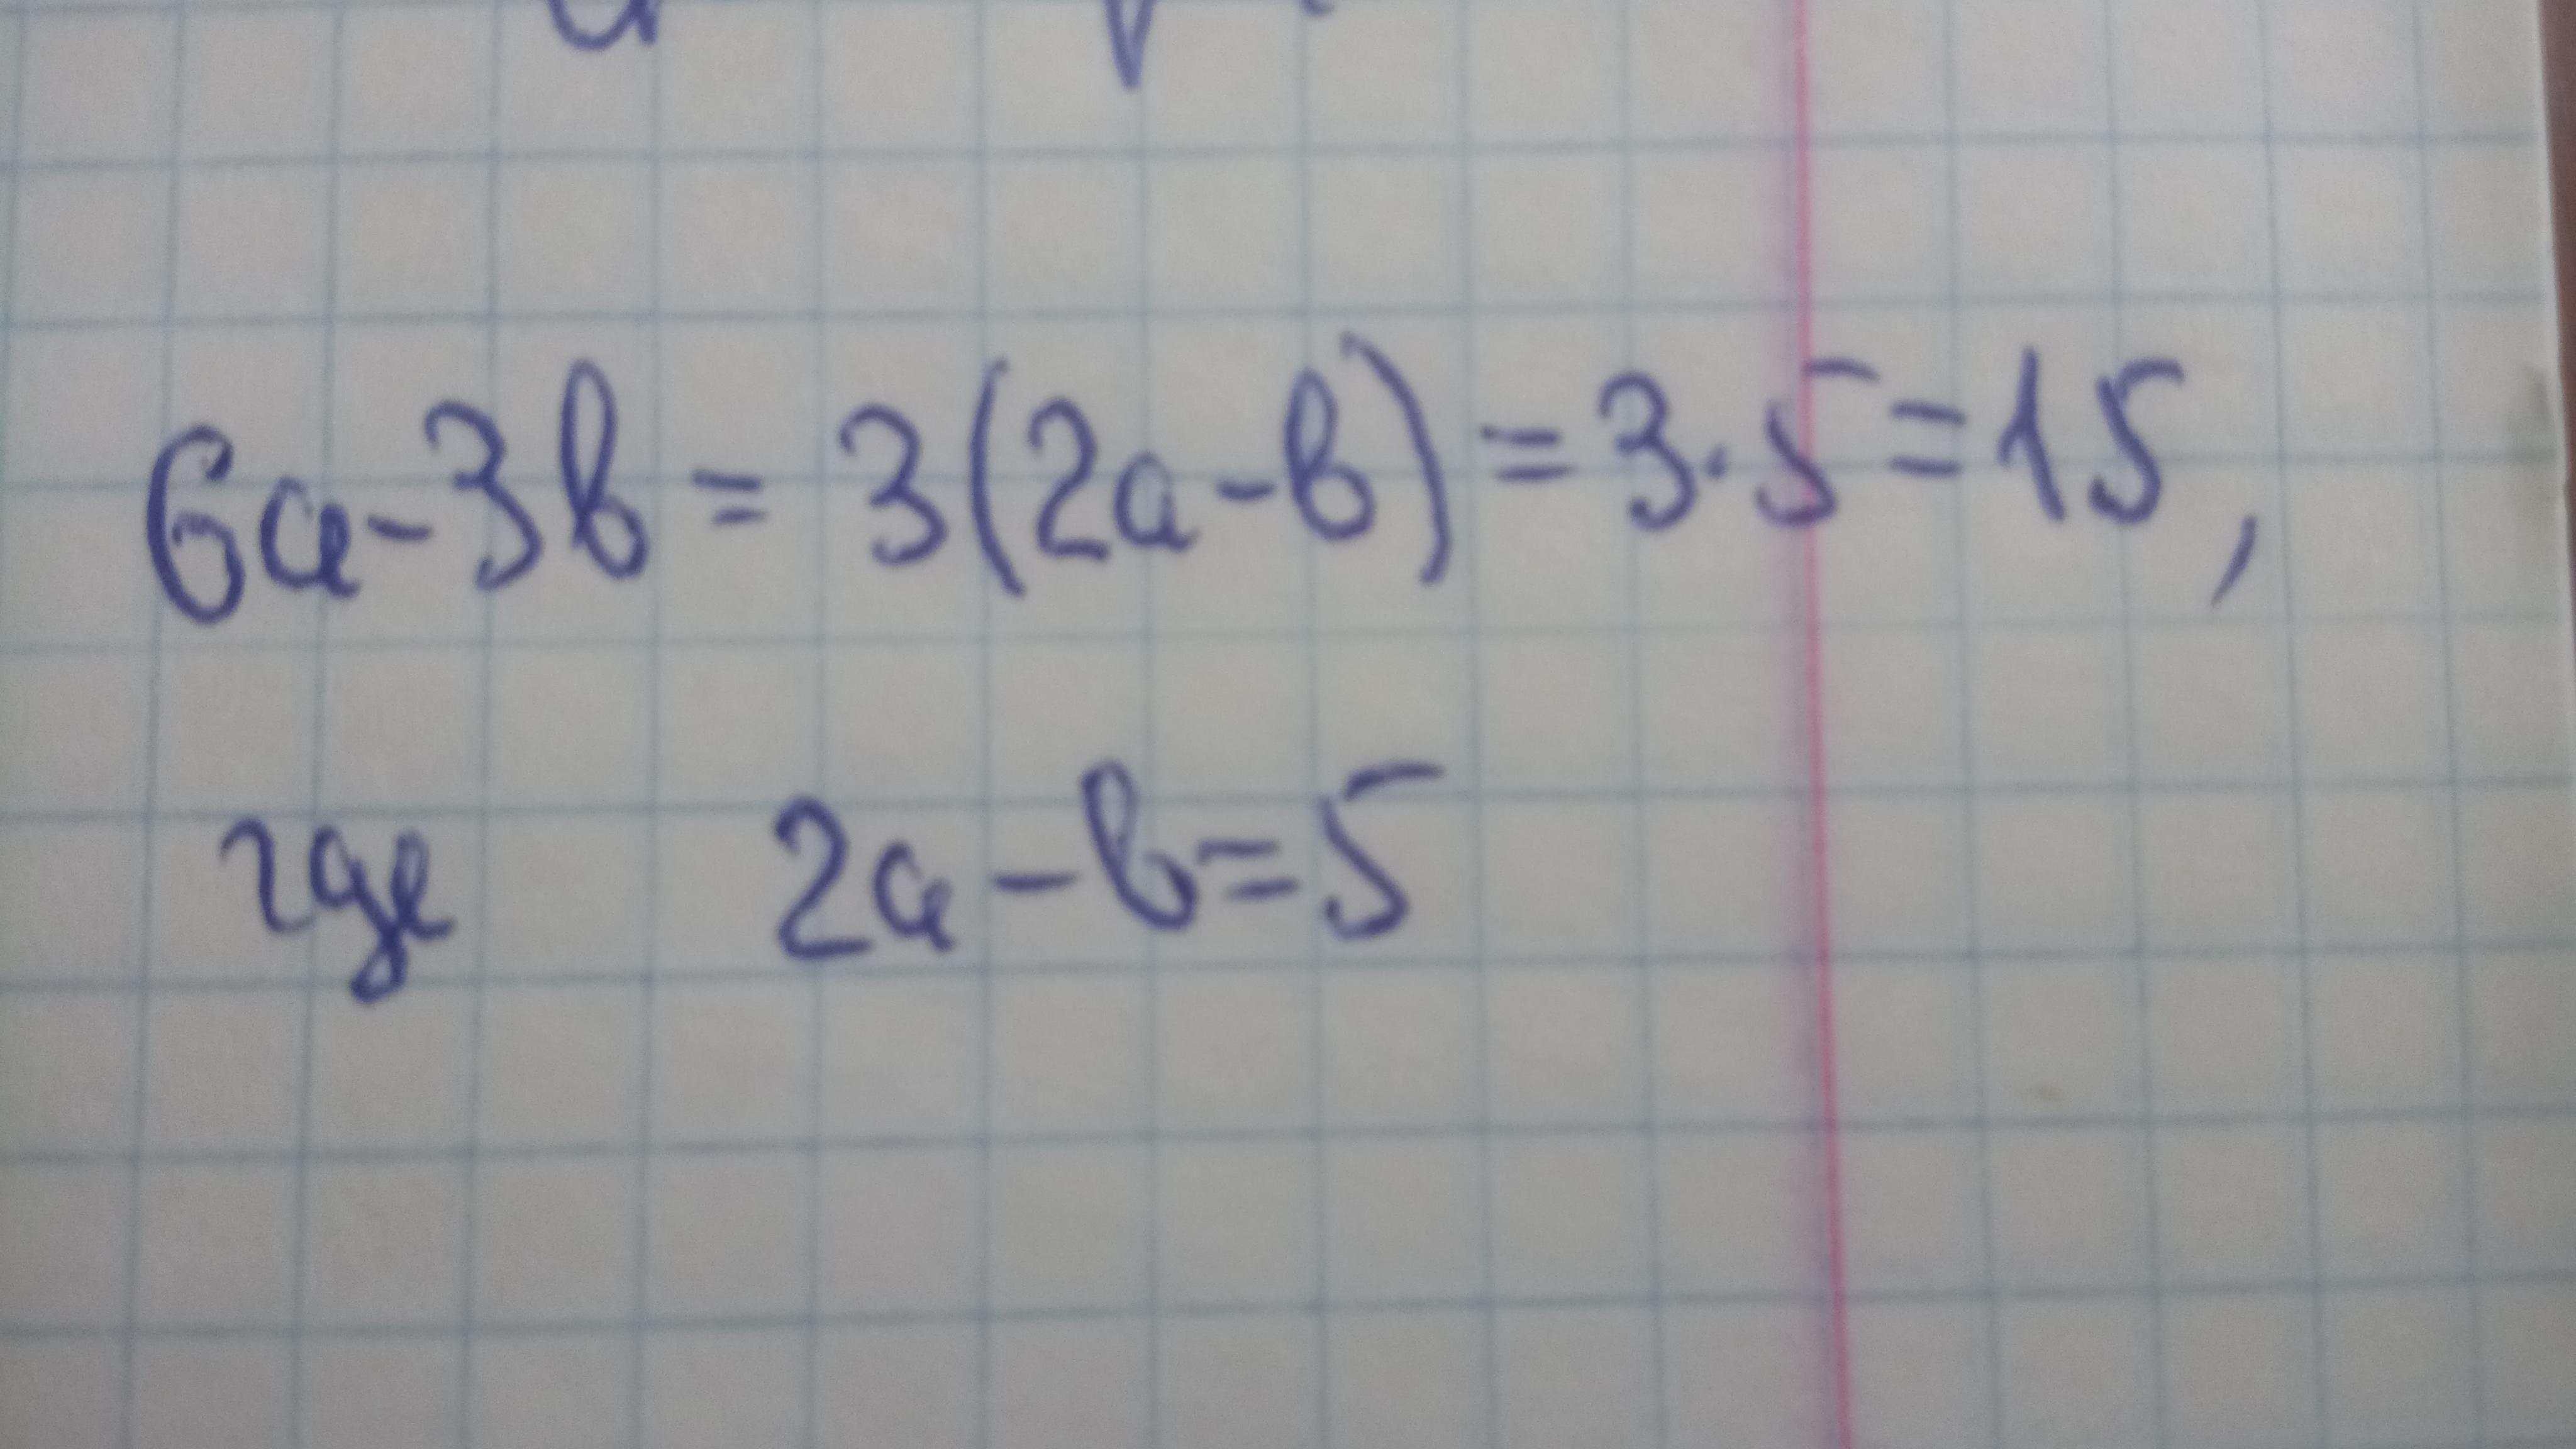 6a-3b = 3(2a-b) = 3·5=15,
где 2a-b=5